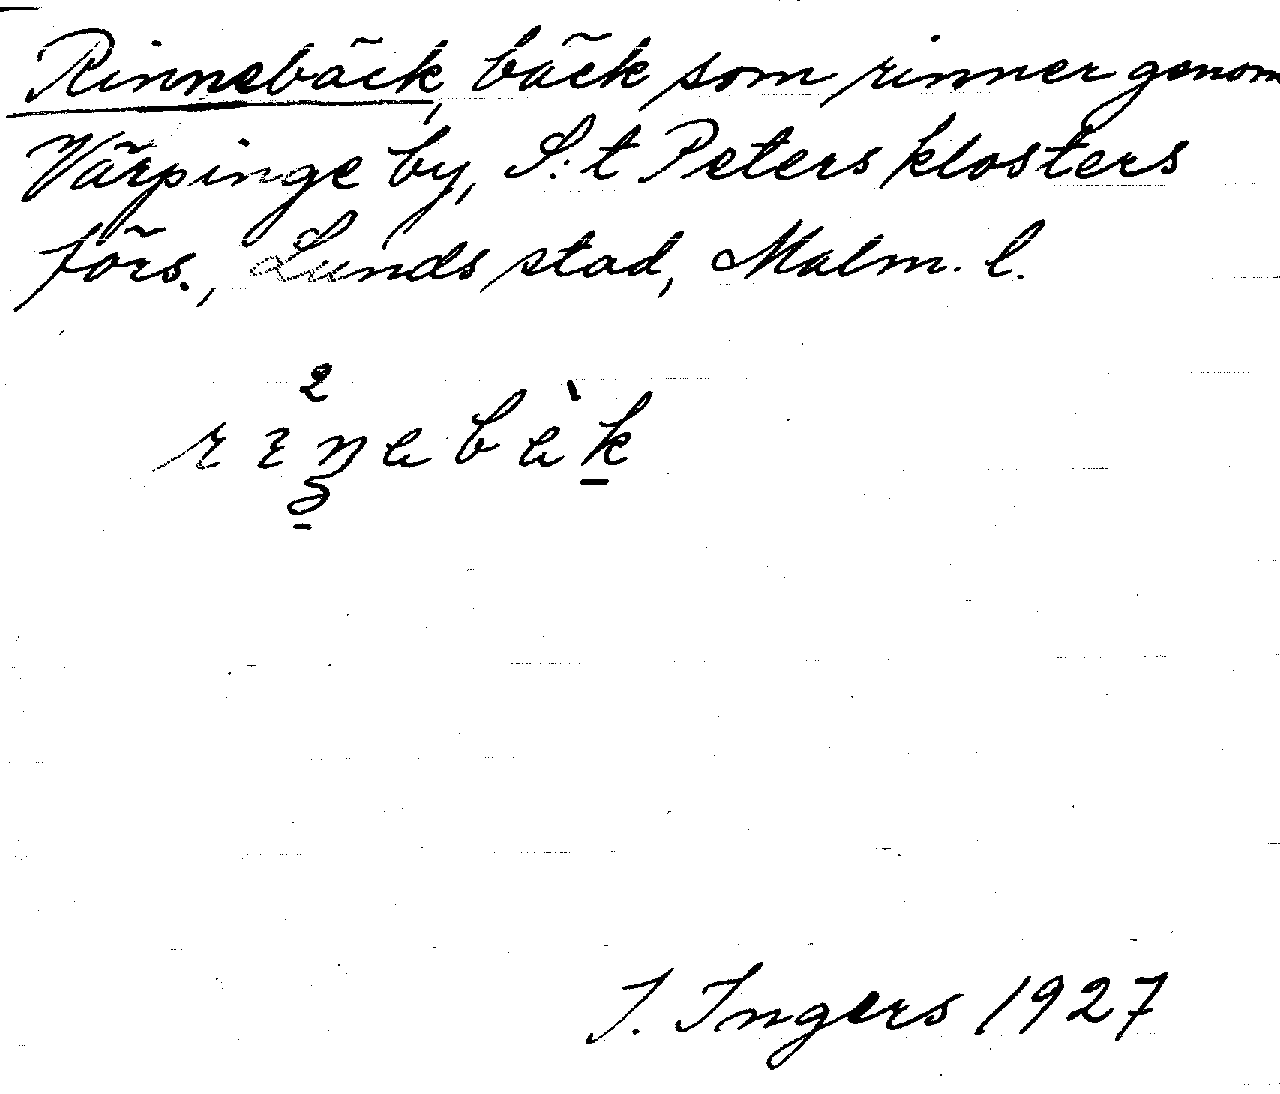 Rinnebäck, bäck som rinner genom
Värpinge by, S:t Peters klosters
förs., Lunds stad, Malm. l.
I. Ingers 1927